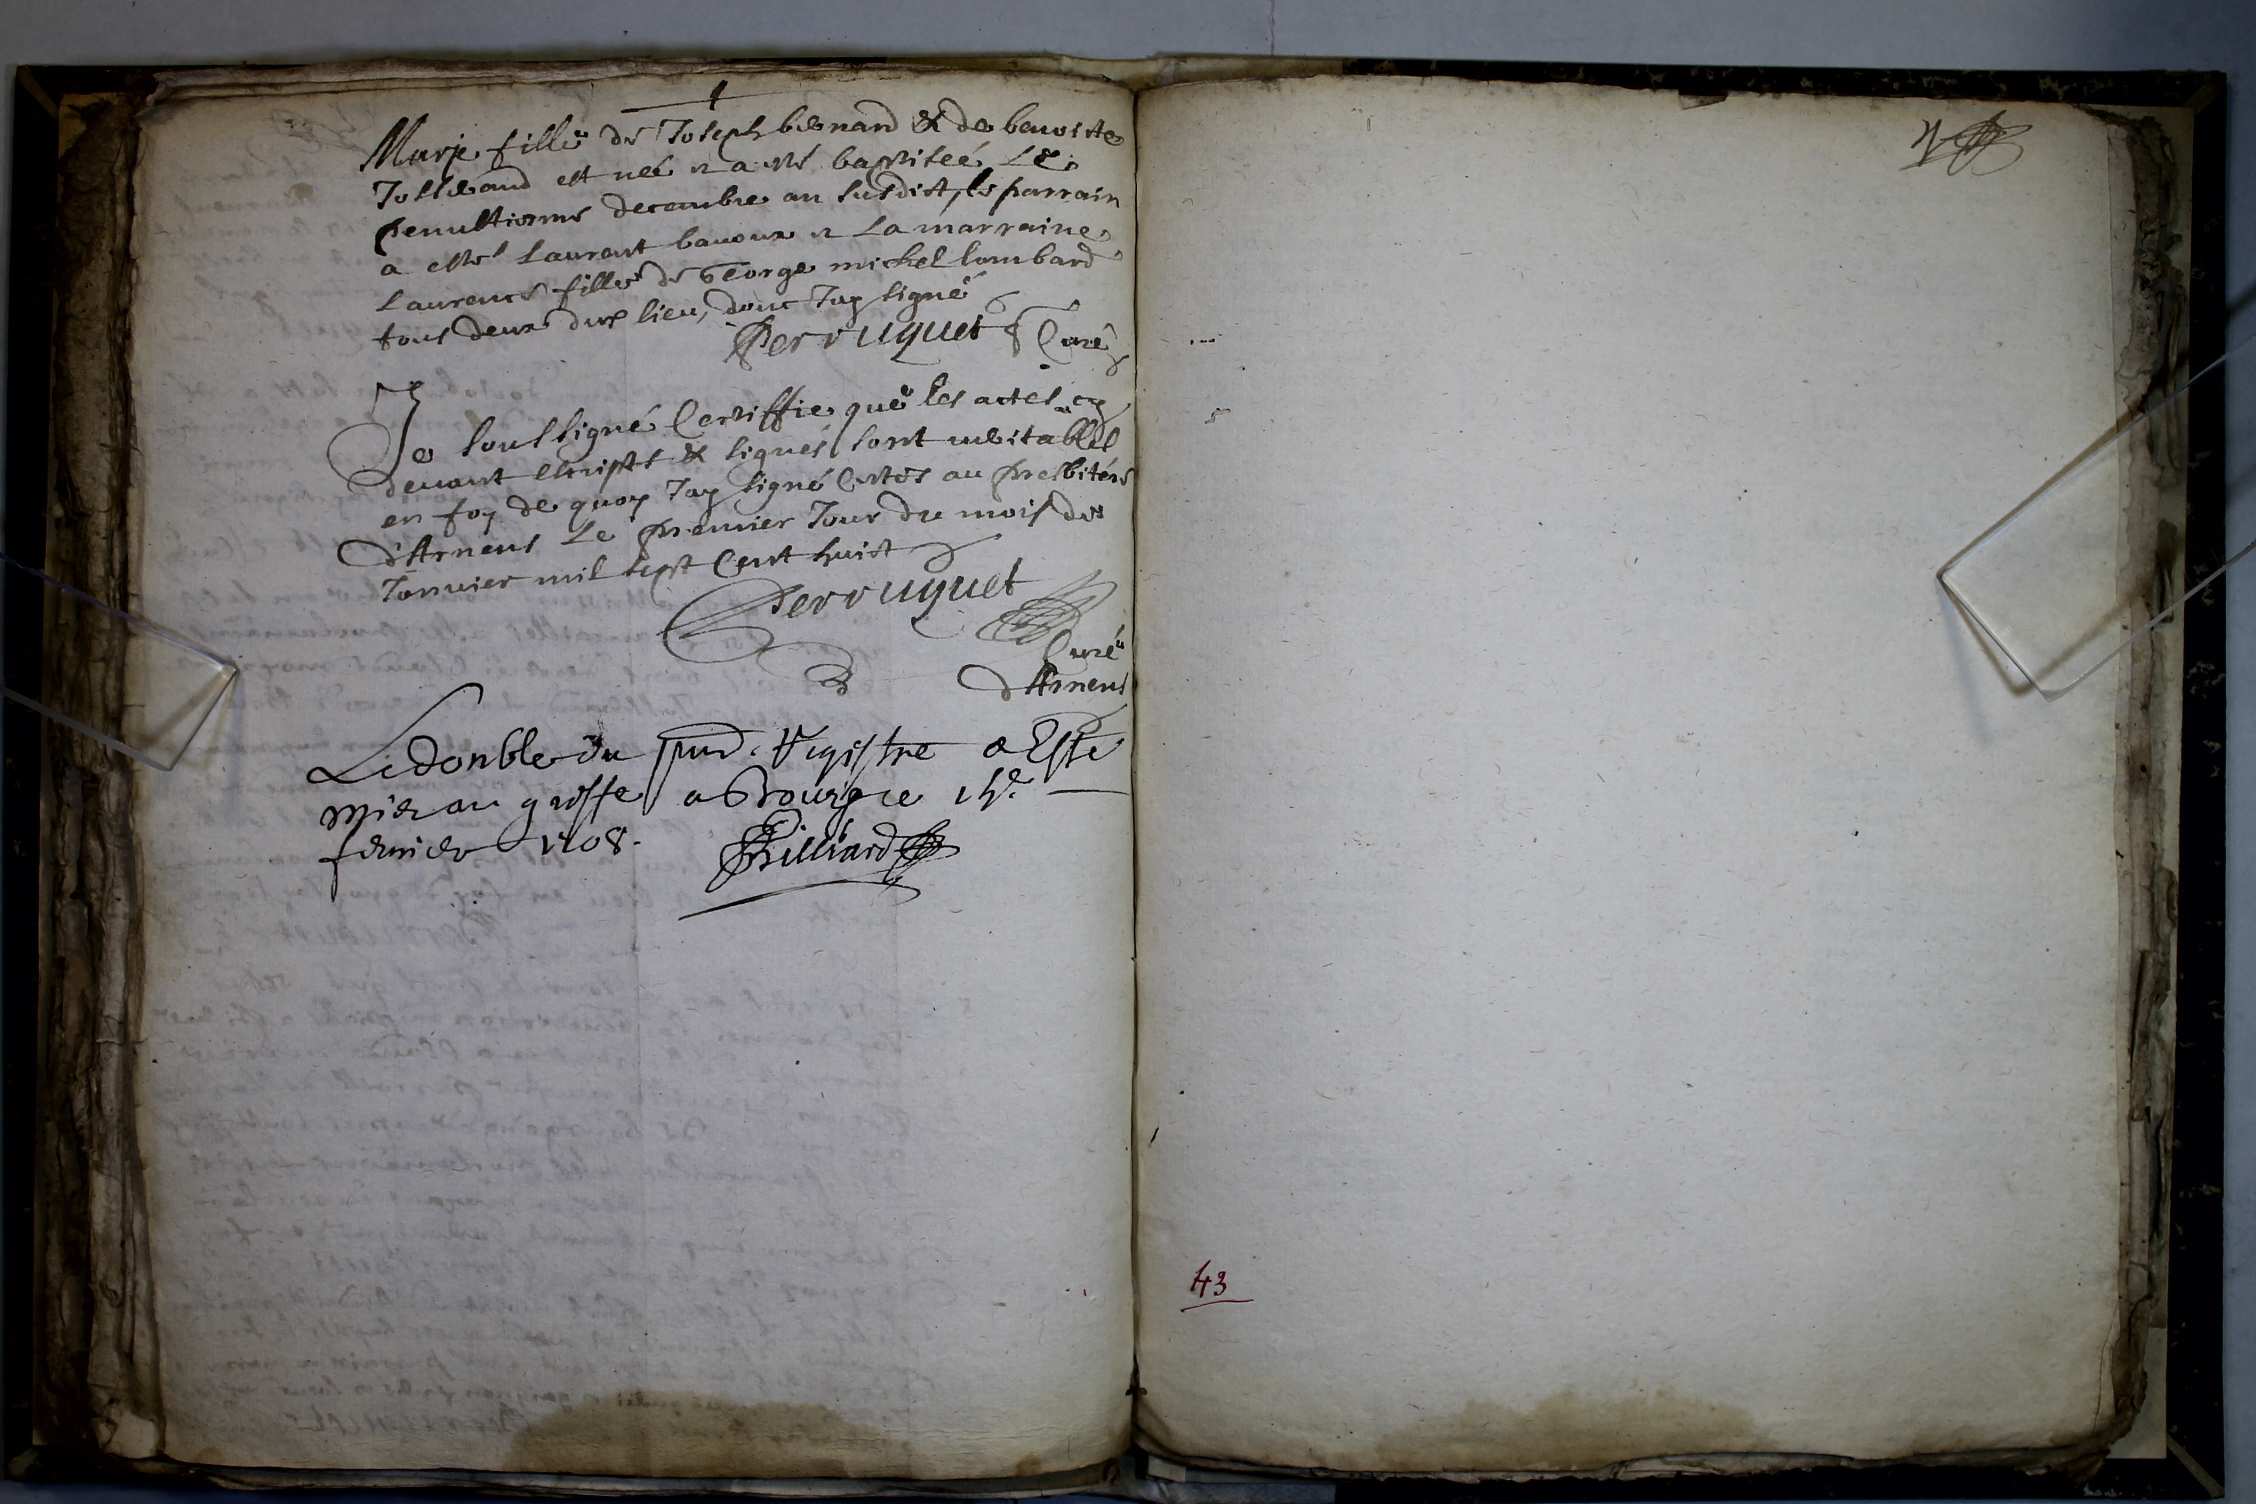 Marie fille de Joseph bernard & de benoiste
Josserand est née et a esté baptiseé Le
penultiesme decembre an susdict, le parrain
a esté Laurent bauoux et La marraine
Laurence fille de George michel lombard
tous deux dud lieu, donc Jay signé
Perruquet Curé
Je soussigné Certiffie que les actes cy
deuant escripts & signés sont ueritables
en foy de quoy Jay signé Cestes au presbitere
d'Arnens Le premier Jour du mois de
Januier mil sept Cent huict
Perruquet
Curé
d'Arnens
Le double du pnt. Registre a Esté
mis au greffe a Bourg ce
feurier 1708.
Billiard
43